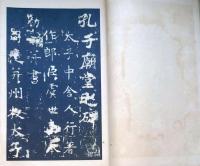 孔子廟堂之碑
太子中舍人行著
作郎臣虞世南奉
勑撰并書
司徒并州牧太子